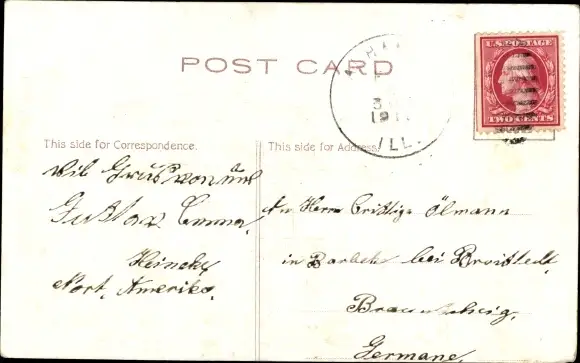 POST CARD
U.S. POSTAGE
TWO CENTS
3
191
ILL.
This side for Correspondence.
This side for Address.
Vil Grüß von uns
Gustav Emma
Heineke
Nort, Amerika.
An Herrn Cristige Ölmann
in Barbeke bei Broistedt,
Braunschwig,
Germane,